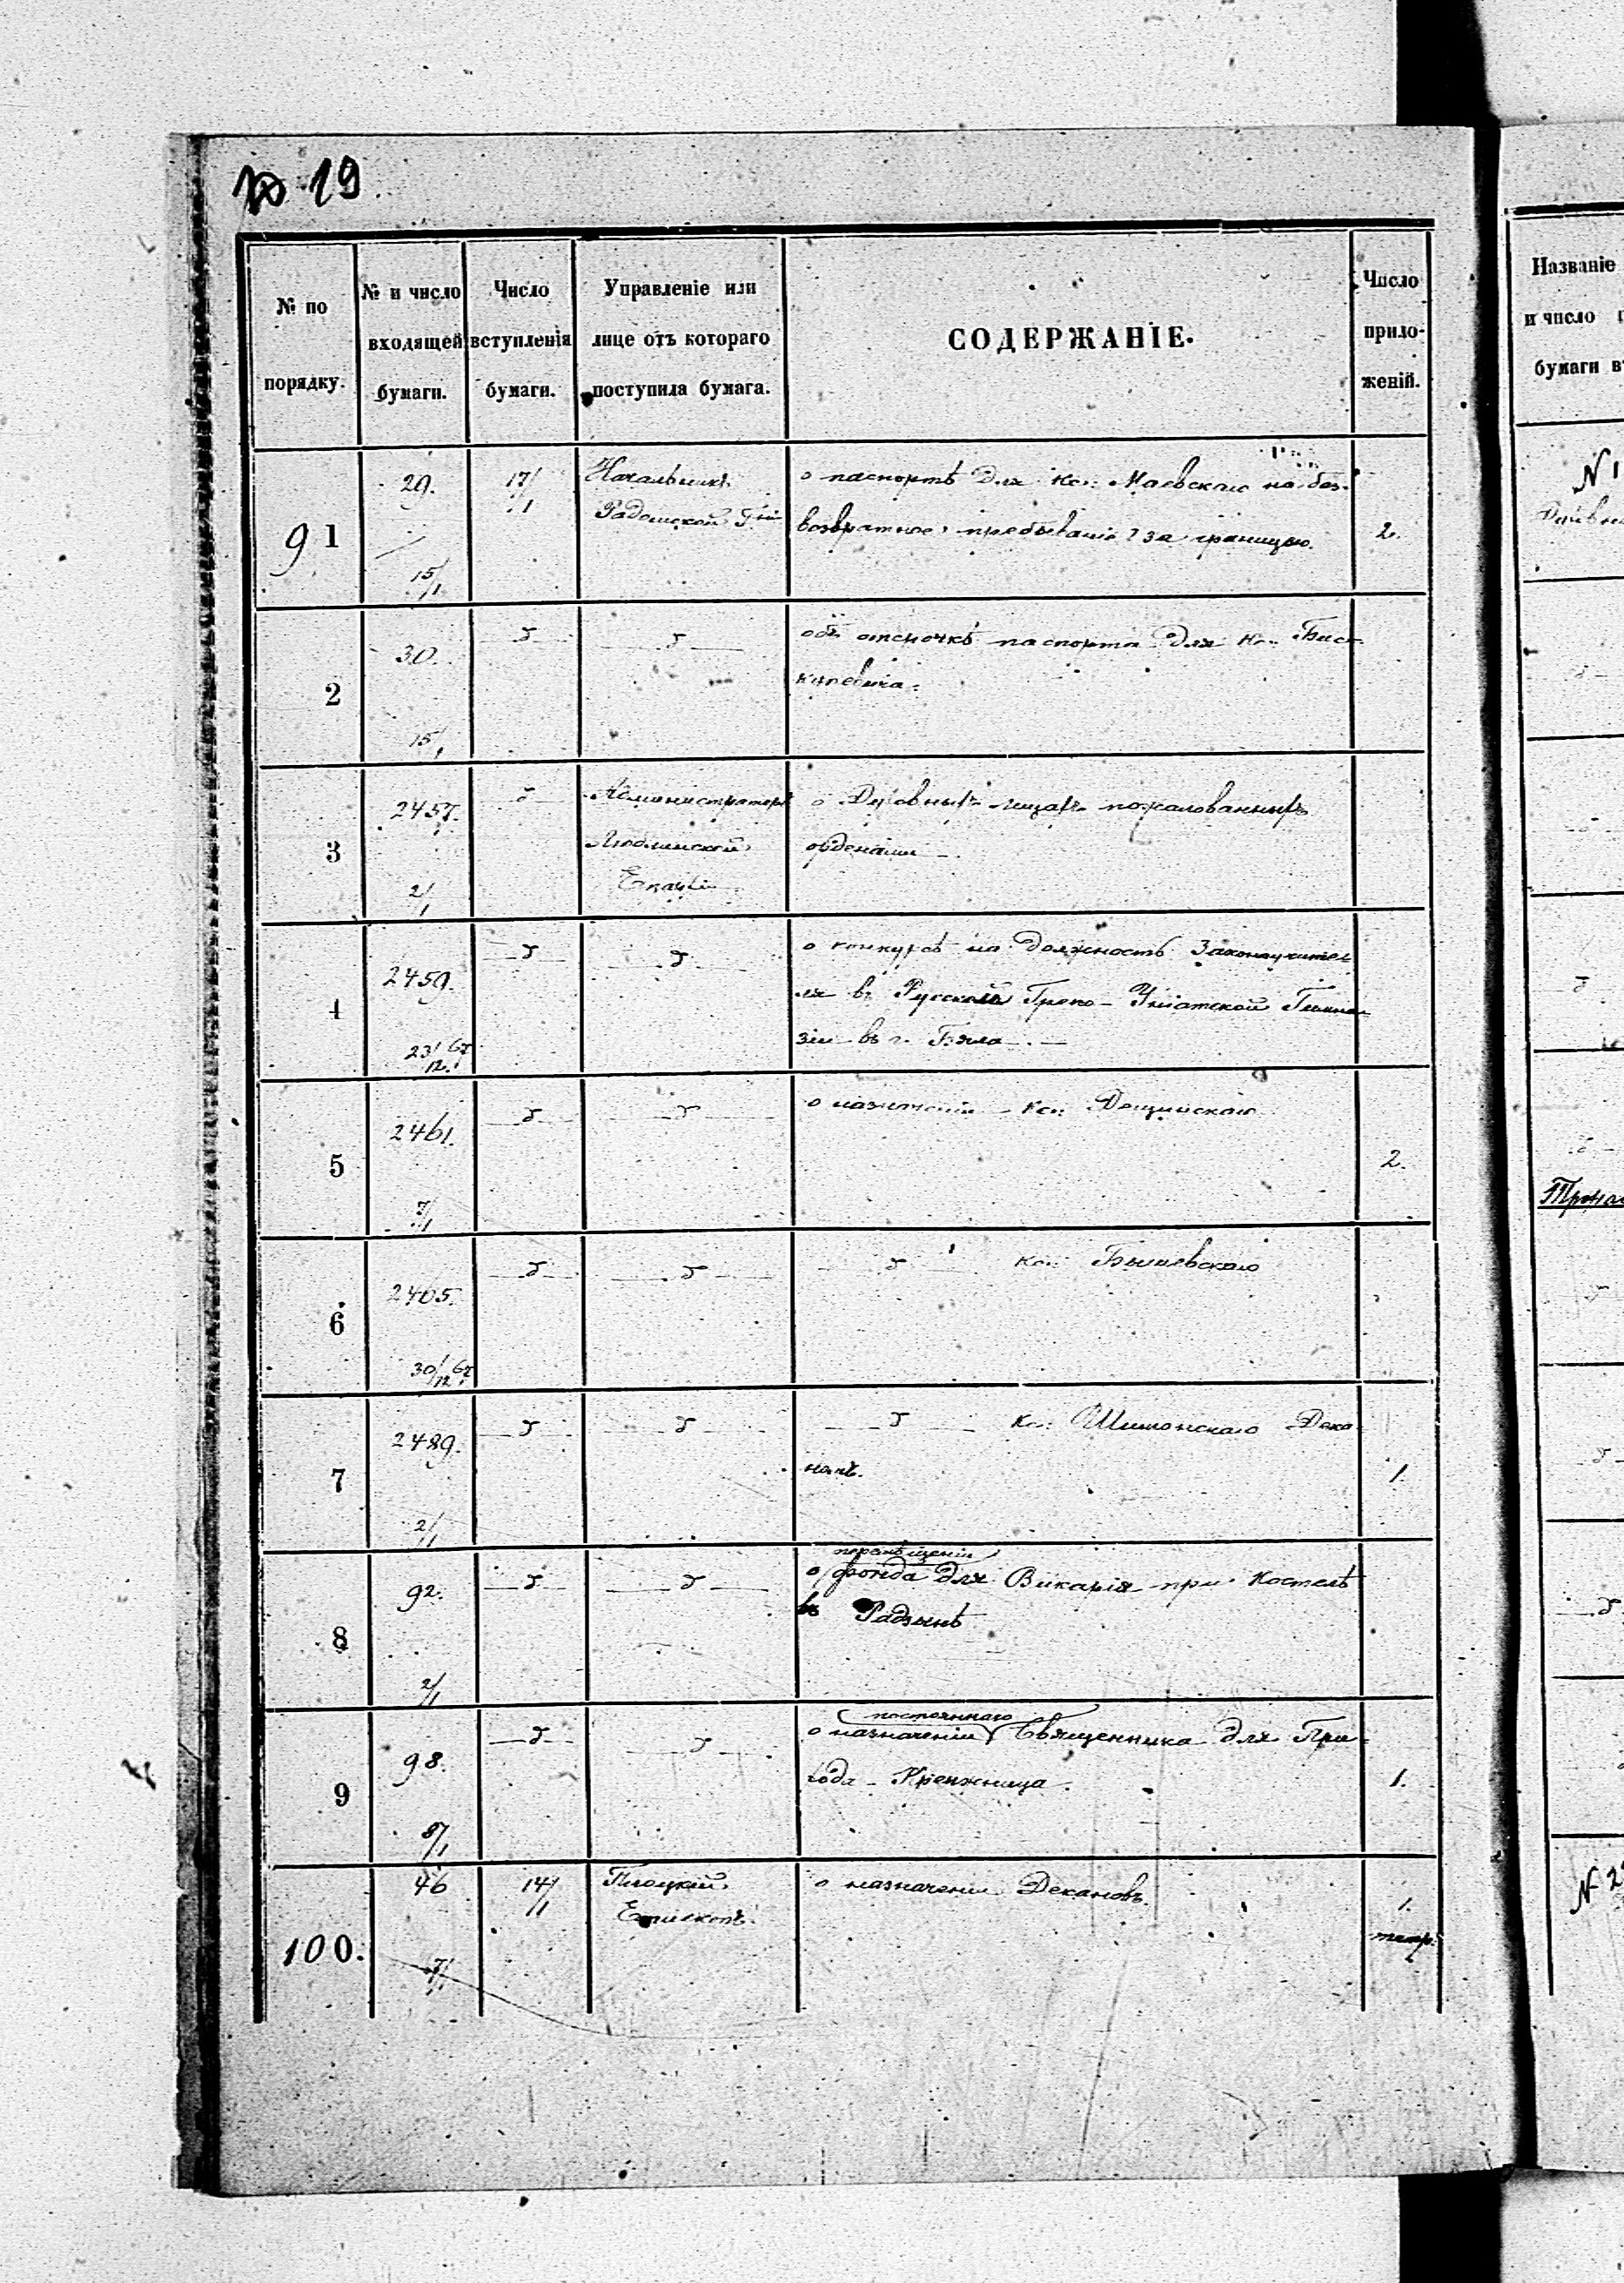 19
№ по порядку.
№ и число входящей бумаги.
Число вступленія бумаги.
Управленіе или лице отъ котораго поступила бумага.
СОДЕРЖАНІЕ.
Число приложеній.
91
29.
15/1
17/1
Начальникъ
Радомской
о паспортѣ для Кс: Маевскаго на без-
возвратное пребываніе за границею.
2.
2
30.
15/1
объ отсылкѣ паспорта для Кс:
3
2457.
2/1
Администраторъ
Люблинской
Епархіи
о Духовныхъ лицахъ пожалованныхъ
орденами
4
2459.
23/12 67
о конкурсѣ на должность Законоучите-
ля въ Русской Греко-Уніатской Гимна-
зіи въ г. Бяла.
5
2461.
7/1
о назначеніи Кс:
2.
6
2465.
30/12 67
Кс:
7
2489.
2/1
Кс: Шимонскаго Дека-
номъ.
1.
8
92.
2/1
перемѣщеніи
о фонда для Викарія при Костелѣ
въ Радзынѣ
9
98.
8/1
постояннаго
о назначеніи Священника для При-
хода Кренжница.
1.
100.
46
7/1
14/1
Плоцкій
Епископъ.
о назначеніи Декановъ.
1.
Названіе
и число
бумаги
N 1
N 2